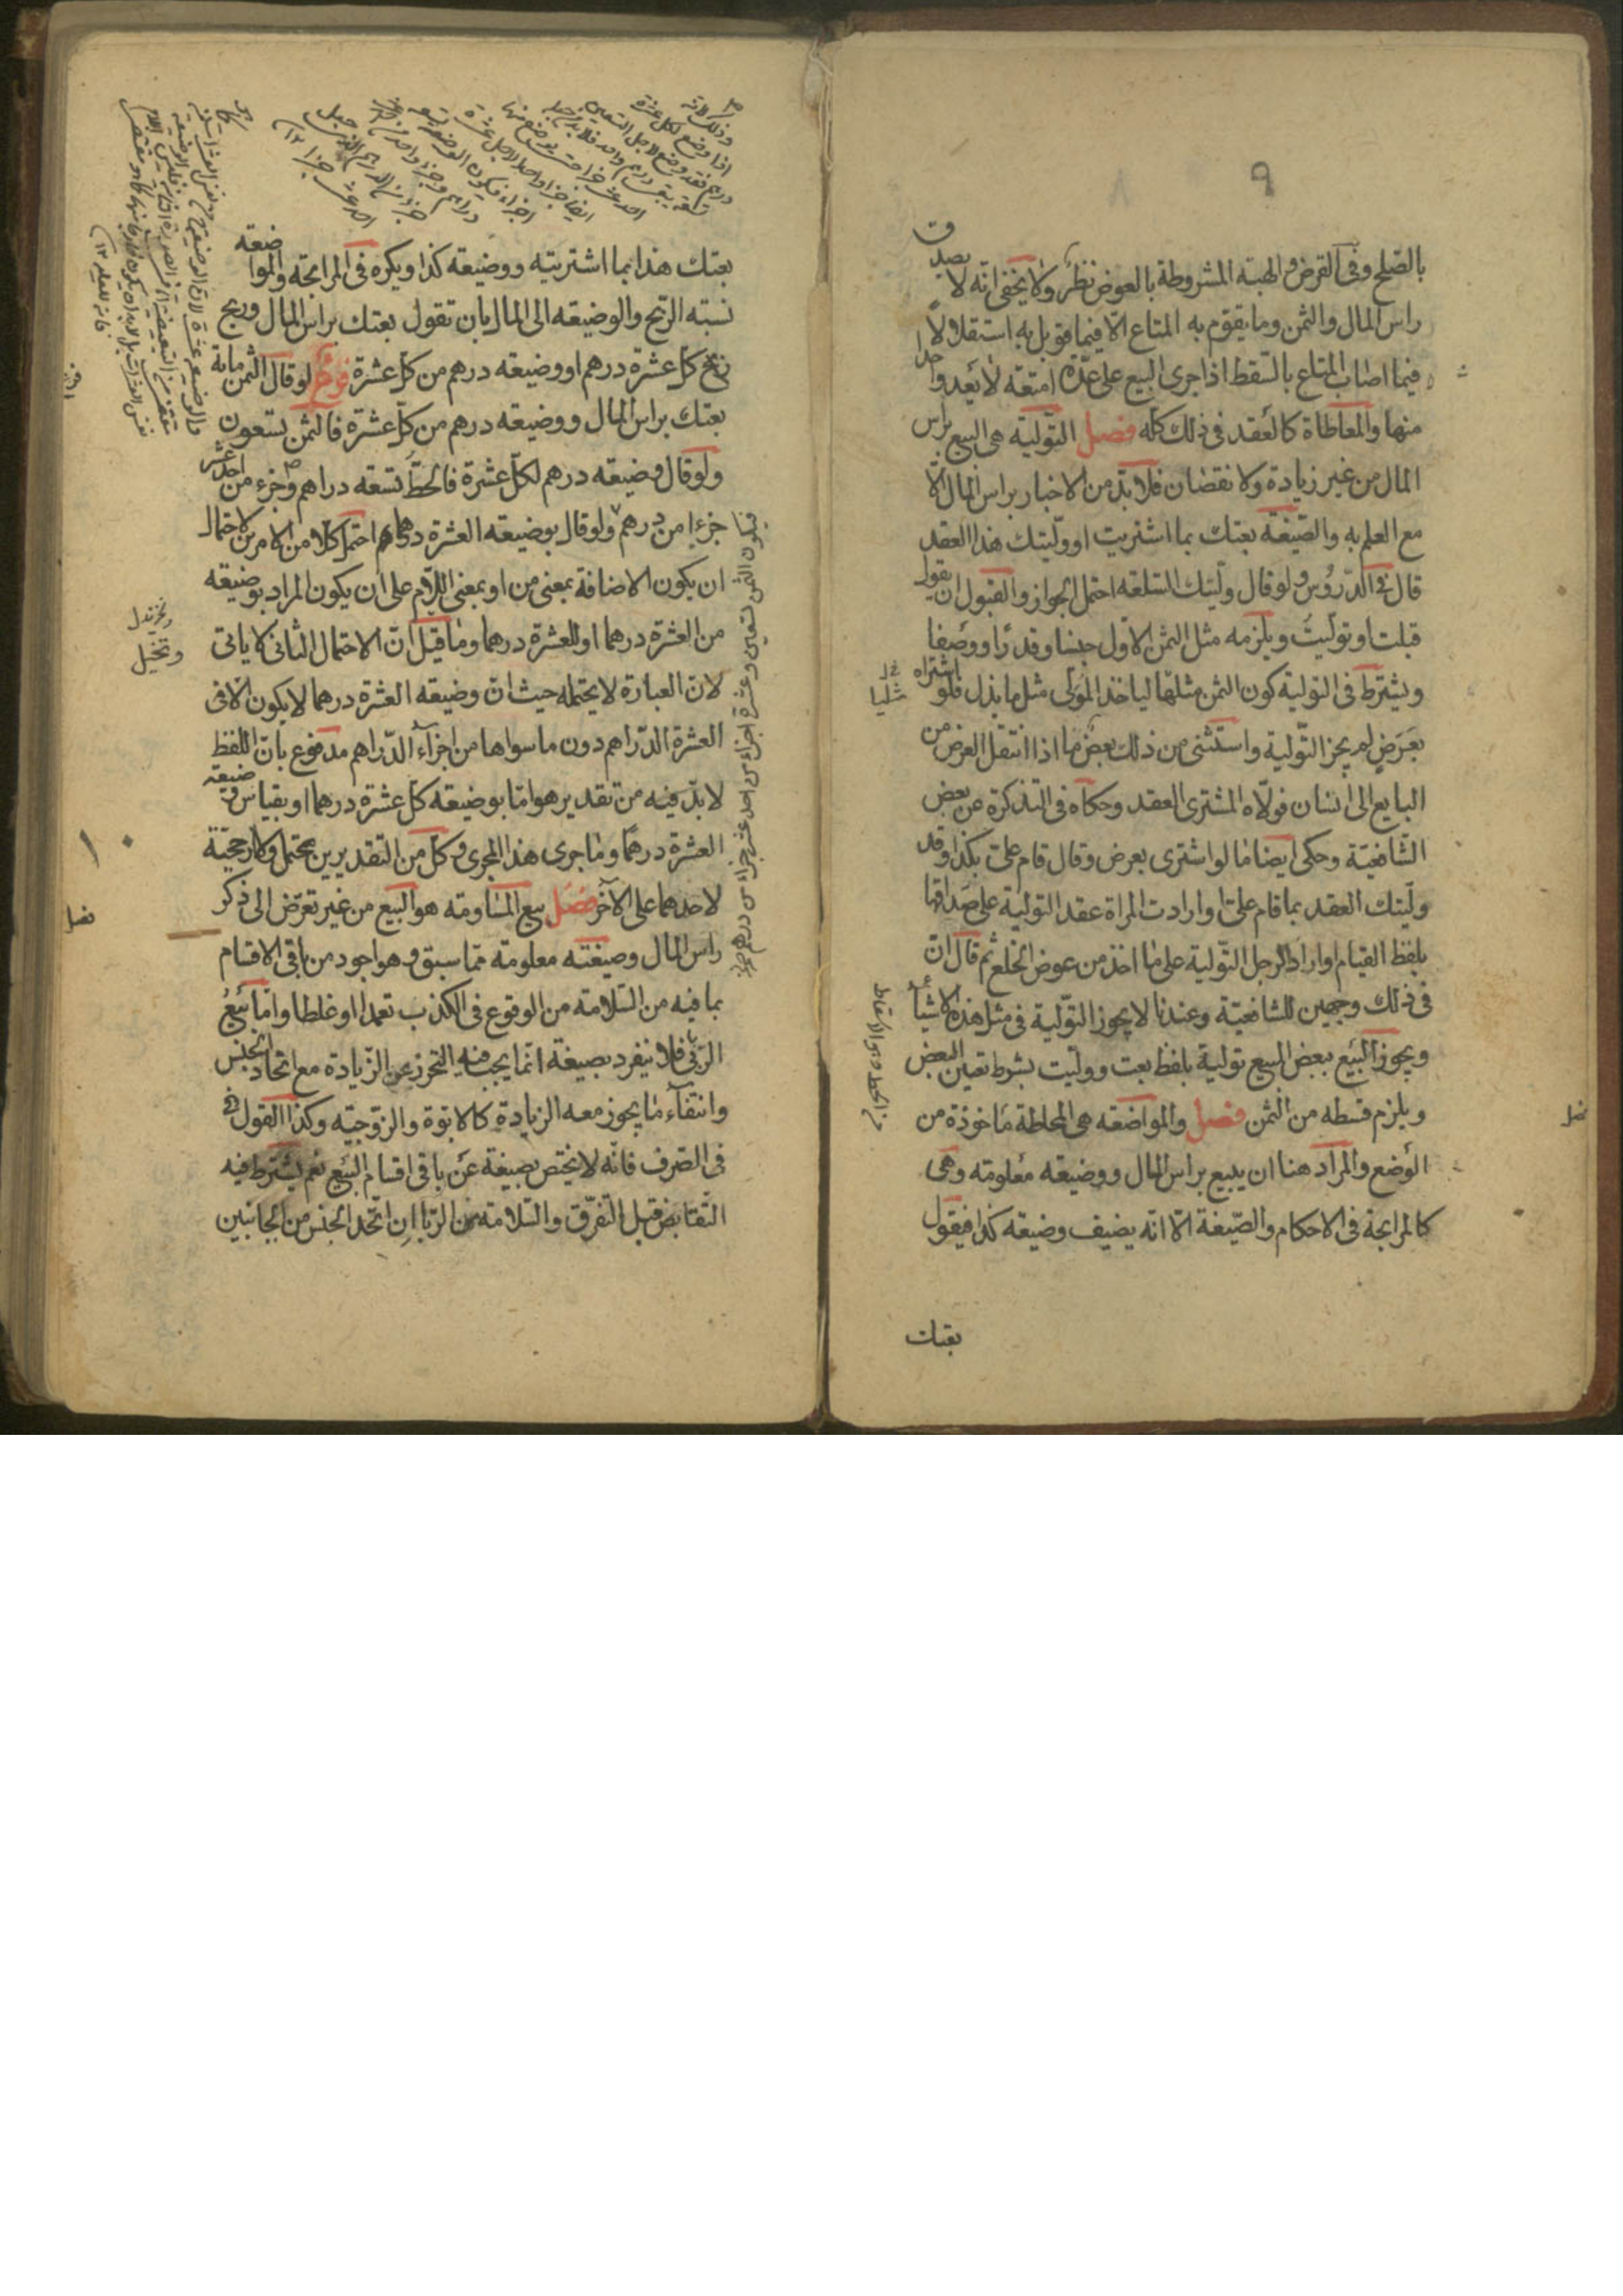 ٩
بالصلح وفى القرض والهبة المشروطة بالعوض نظر ولا يخفى انه لا يصدق
راس المال والثمن وما يقوم به المتاع الا فيما قوبل به استقلالا
فيما اصاب المتاع بالتقسط اذا جرى البيع على عدة امتعة لا بعد واحد
منها والمعاطاة كالعقد فى ذلك كله فصل التولية هى البيع براس
المال من غير زيادة ولا نقصان فلا بد من الاخبار براس المال الا
مع العلم به والصيغة بعتك بما اشتريت او وليتك هذا العقد
قال فى الدروس ولو قال وليتك السلعة احتمل الجواز والقبول ان يقول
قبلت او توليت ويلزمه مثل الثمن الاول جنسا وقدرا ووصفا
ويشترط فى التولية كون الثمن مثليا لياخذ المولى مثل ما بذل فلو اشتراه
بعرض لم يجز التولية واستثنى من ذلك بعض ما اذا انتقل العرض من
البايع الى انسان فولاه المشترى العقد وحكاه فى التذكرة عن بعض
الشافعية وحكى ايضا ما لو اشترى بعرض وقال قام على بكذا وقد
وليتك العقد بما قام على او ارادت المراة عقد التولية على صداقها
بلفظ القيام او اراد الرجل التولية على ما اخذ من عوض الخلع ثم قال ان
فى ذلك وجهين للشافعية وعندنا لا يجوز التولية فى مثل هذه الاشيآء
ويجوز البيع ببعض المبيع تولية بلفظ بعت ووليت بشرط تعين البعض
ويلزم قسطه من الثمن فصل والمواضعة هى المحاطة ماخوذة من
الوضع والمراد هنا ان يبيع براس المال ووضيعة معلومة وهى
كالمرابحة فى الاحكام والصيغة الا انه يضيف وضيعة كذا فيقول
بعتك
من الحط وهو الاسقاط
فصل
بعتك هذا بما اشتريته ووضيعة كذا ويكره فى المرابحة والمواضعة
نسبة الربح والوضيعة الى المال بان تقول بعتك براس المال وربح
ربح كل عشرة درهم او ووضيعة درهم من كل عشرة فرع لو قال الثمن مائة
بعتك براس المال ووضيعة درهم من كل عشرة فالثمن تسعون
ولو قال وضيعة درهم لكل عشرة فالحط تسعة دراهم وجزء من احد عشر
جزءا من درهم ولو قال بوضيعة العشرة درهم احتمل كلا من الامرين لاحتمال
ان يكون الاضافة بمعنى من او بمعنى اللام على ان يكون المراد بوضيعة
من العشرة درهما او للعشرة درهما وما قيل ان الاحتمال الثانى لا ياتى
لان العبارة لا يحتمله حيث ان وضيعة العشرة درهما لا يكون الا فى
العشرة الدراهم دون ما سواها من اجزآء الدراهم مدفوع بان اللفظ
لا بد فيه من تقدير هو اما بوضيعة كل عشرة درهما او بقياس وضيعة
العشرة درهما وما جرى هذا المجرى وكل من التقديرين يحتمل ولا ارجحية
لاحدهما على الآخر فصل بيع المساومة هو البيع من غير تعرض الى ذكر
راس المال وصيغته معلومة مما سبق وهو اجود من باقى الاقسام
بما فيه من السلامة من الوقوع فى الكذب تعمدا او غلطا واما بيع
الربى فلا ينفرد بصيغة انما يجب فيه التحرز عن الزيادة مع اتحاد الجنس
وانتفآء ما يجوز معه الزيادة كالابوة والزوجية وكذا القول
فى الصرف فانه لا يختص بصيغة عن باقى اقسام البيع نعم يشترط فيه
التقابض قبل التفرق والسلامة من الربا ان اتحد الجنس من الجانبين
فيكون الثمن تسعين وعشرة اجزاء من احد عشر جزءا من درهم
١٠
فصل